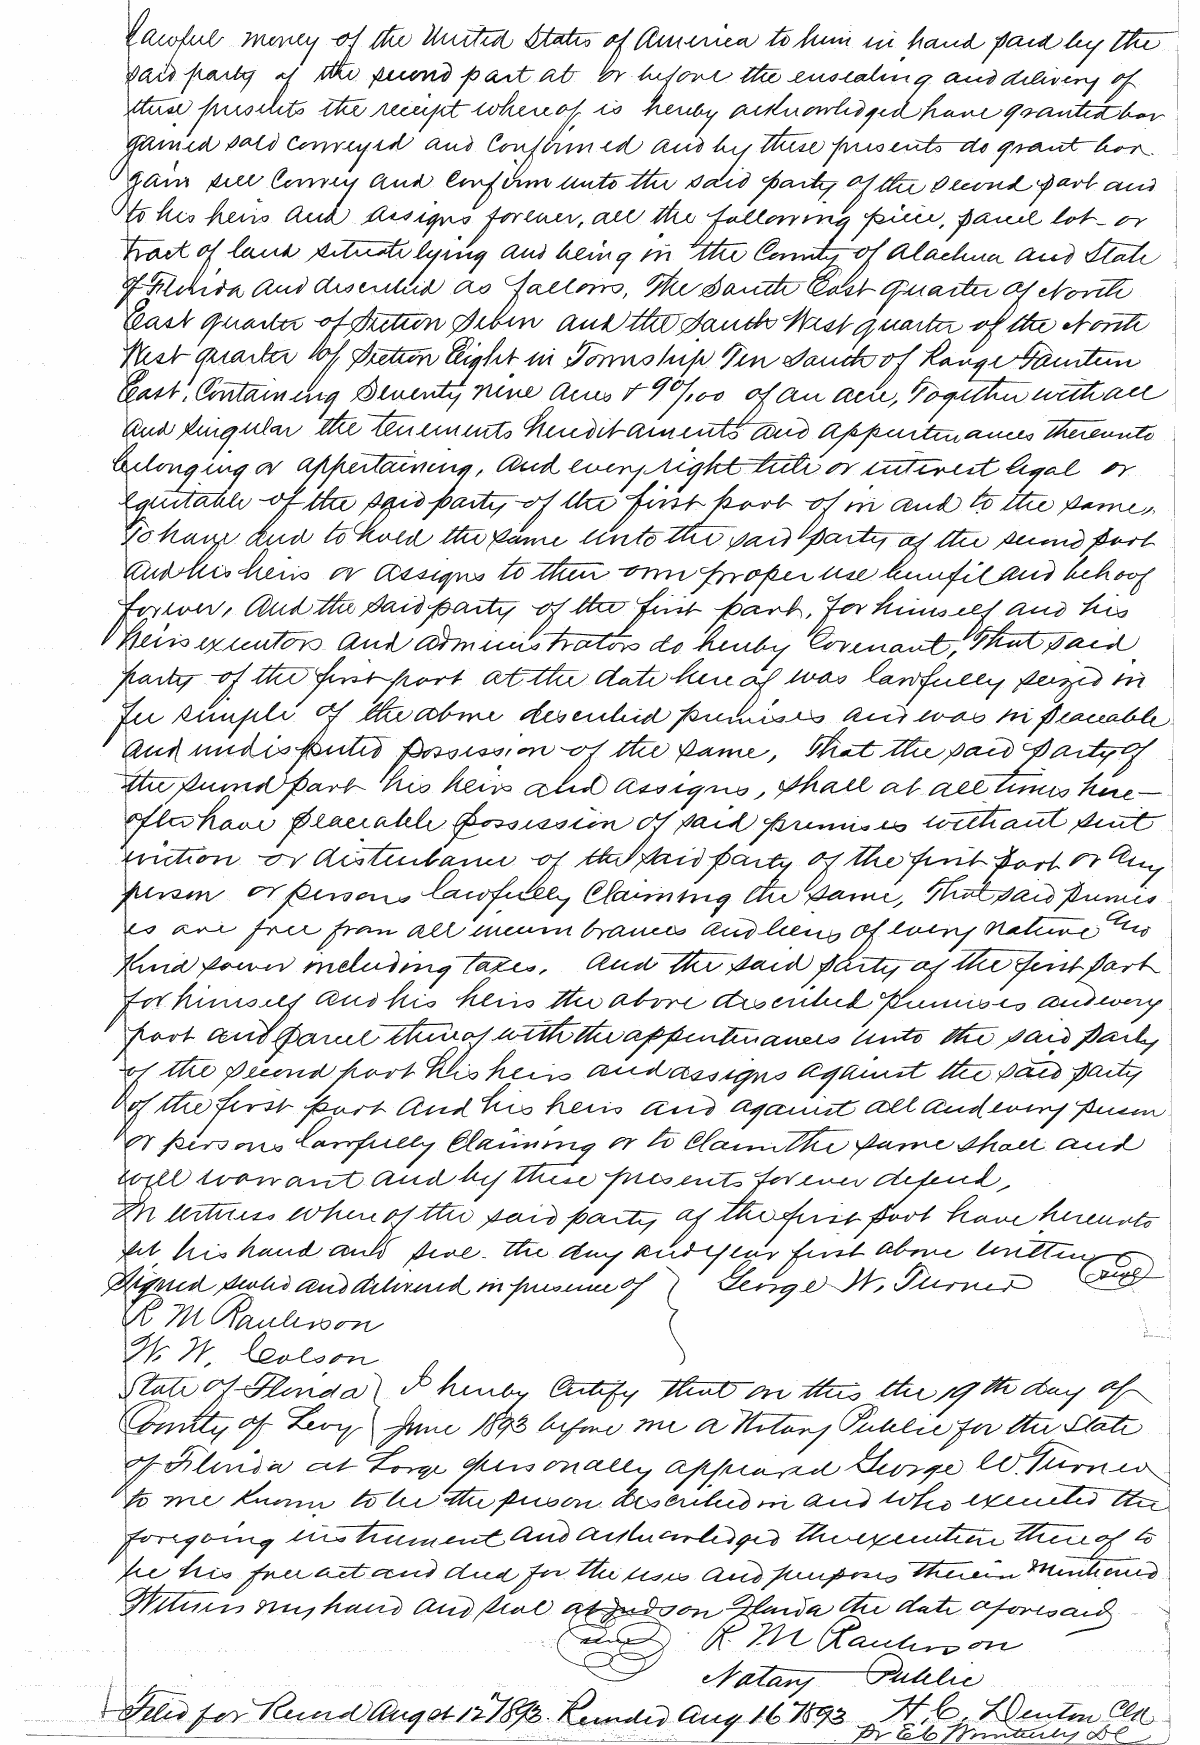 Lawful money of the United States of America to him in hand paid by the
said party of the second part at or before the ensealing and delivery of
these presents the receipt whereof is hereby acknowledged have granted bar
gained sold conveyed and confirmed and by these presents do grant bar
gain sell convey and confirm unto the said party of the second part and
to his heirs and assigns forever, all the following piece, parcel lot or
tract of land situate lying and being in the County of Alachua and State
of Florida and described as follows, The South East quarter of North
East quarter of Section Seven and the South West quarter of the North
West quarter of Section Eight in Township Ten South of Range Fourteen
East, Containing Seventy nine Acres & 90/100 of an acre, Together with all
and singular the tenements hereditaments and appurtenances thereunto
belonging or appertaining, and every right title or interest legal or
equitable of the said party of the first part of in and to the same,
To have and to hold the same unto the said party of the second part
and his heirs or assigns to their own proper use benefit and behoof
forever, And the said party of the first part, for himself and his
heirs executors and administrators do hereby Covenant, That said
party of the first part at the date hereof was lawfully seized in
fee simple of the above described premises and was in peaceable
and undisputed possession of the same, That the said party of
the second part his heirs and assigns, shall at all times here-
after have peaceable possession of said premises without suit
eviction or disturbance of the said party of the first part or any
person or persons lawfully Claiming the same, That said premis
es are free from all incumbrances and liens of every nature and
kind soever including taxes, And the said party of the first part
for himself and his heirs the above described premises and every
part and parcel thereof with the appurtenances unto the said party
of the second part his heirs and assigns against the said party
of the first part and his heirs and against all and every person
or persons lawfully Claiming or to Claim the same shall and
will warrant and by these presents forever defend,
In witness whereof the said party of the first part have hereunto
set his hand and seal the day and year first above written
Signed sealed and delivered in presence of } George W. Turner (seal)
R M Raulerson
W. W. Colson
State of Florida } I hereby Certify that on this the 19th day of
County of Levy } June 1893 before me a Notary Public for the State
of Florida at Large personally appeared George W. Turner
to me known to be the person described in and who executed the
foregoing instrument and acknowledged the execution thereof to
be his free act and deed for the uses and purposes therein mentioned
Witness my hand and seal at Judson Florida the date aforesaid
(seal) R. M Raulerson
Notary Public
Filed for Record Augst 12" 1893. Recorded Aug 16" 1893 H. C. Denton Clk
Pr E C Wimberly DC